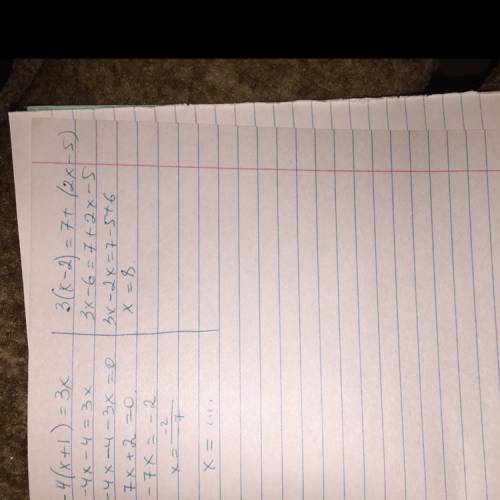 -4(x+1) = 3x
-4x-4 = 3x
-4x-4-3x=0
7x+2 =0.
-7x = -2
x = -2/7
x = ....
3(x-2) = 7+ (2x-5)
3x-6 = 7+2x-5
3x-2x=7-5+6
x = 8.